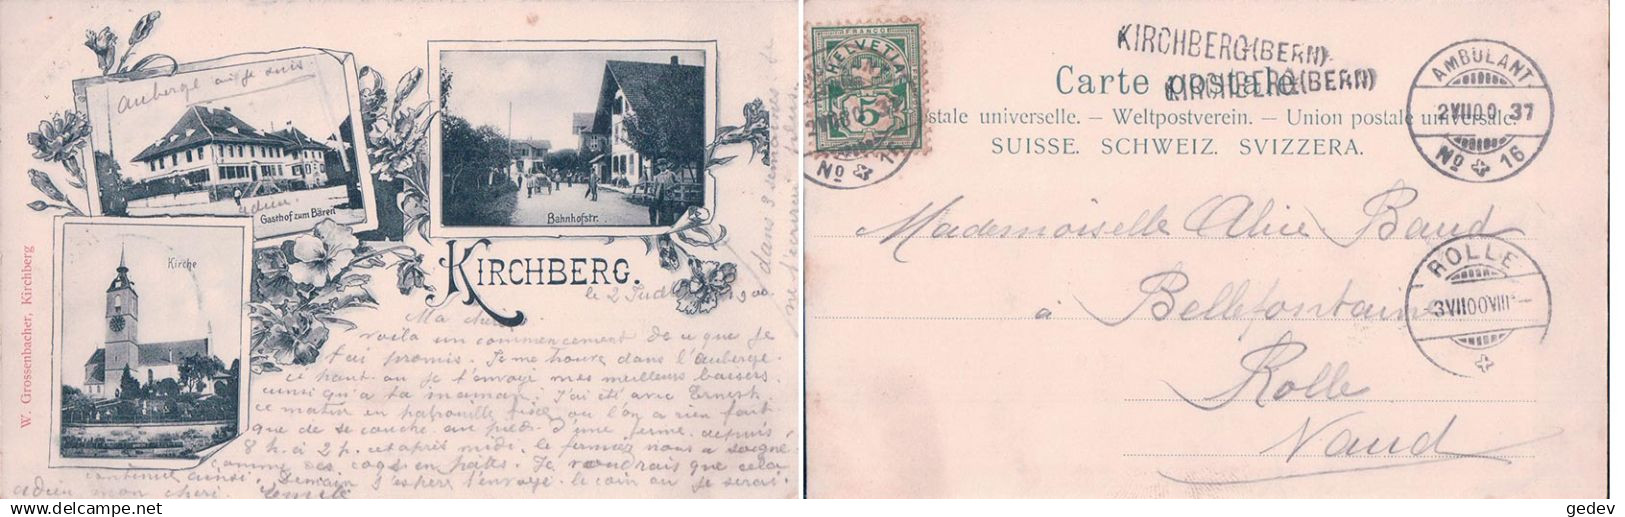 Auberge où je suis
Gasthof zum Bären
adieu.
Bahnhofstr.
Kirche
KIRCHBERG.
W. Grossenbacher, Kirchberg
le 2 Juillet 1900
Ma chérie
voilà un commencement de ce que je
t'ai promis. Je me trouve dans l'auberge
ci haut où je t'envoie mes meilleurs baisers
ainsi qu'à ta maman. J'ai été avec Ernest
ce matin en patrouille fixe où l'on a rien fait
que de se coucher au pied d'une ferme depuis
8 h. à 2 h. et après midi. le fermier nous a soigné
comme des coqs en pattes. Je voudrais que cela
continue ainsi. Demain j'espère t'envoyer le coin où je serai.
adieu mon chéri. Emile
dans 3 semaines
HELVETIA
FRANCO
5
KIRCHBERG (BERN)
KIRCHBERG (BERN)
Carte postale.
postale universelle. — Weltpostverein. — Union postale universale.
SUISSE. SCHWEIZ. SVIZZERA.
AMBULANT
2 VII 00 37
No 16
Mademoiselle Alice Baud
à Bellefontaine
Rolle
Vaud
ROLLE
3 VII 00 VIII
gedev